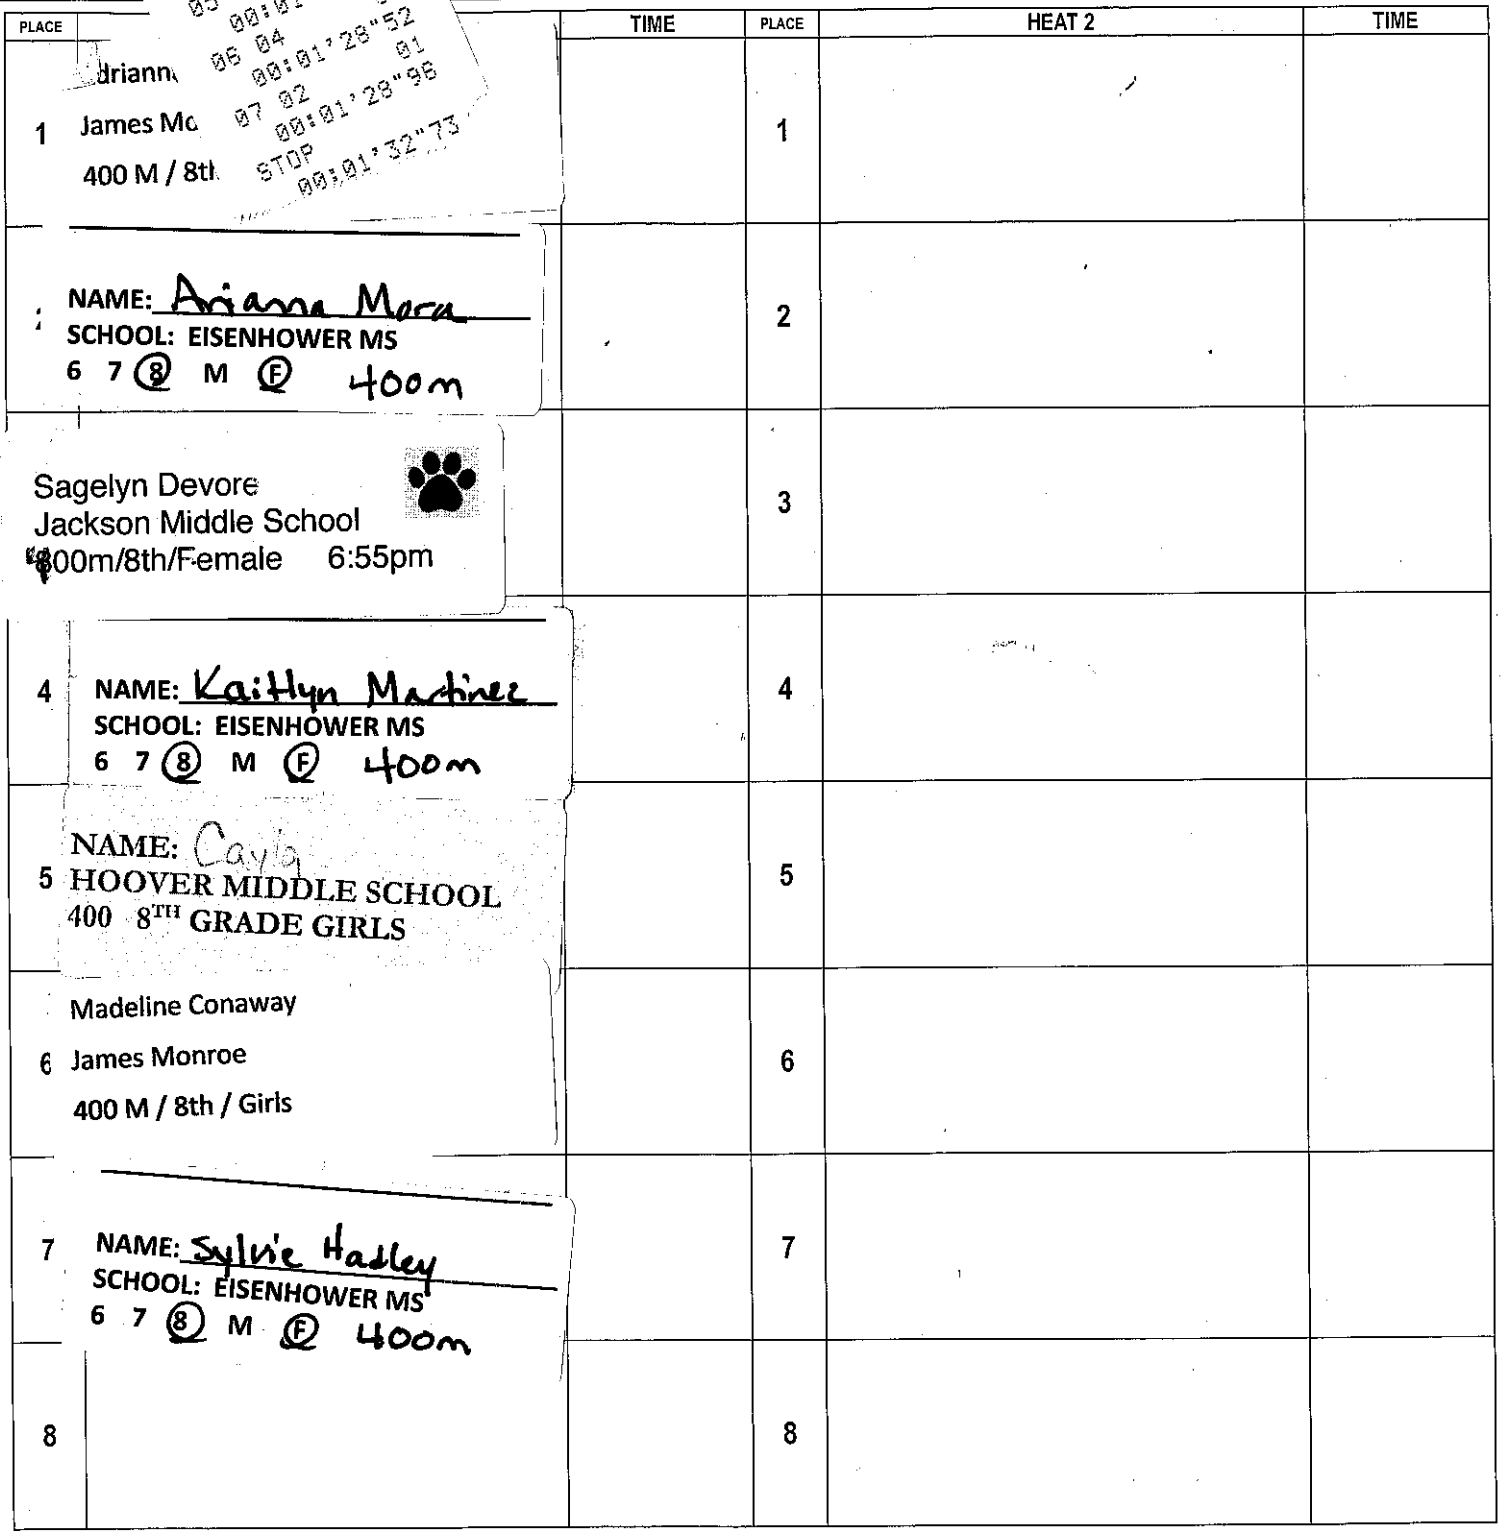 PLACE
TIME
PLACE
HEAT 2
TIME
05
00:01
06 04
00:01'28"52
01
07 02
00:01'28"96
STOP
00:01'32"73
driann
1
James Mo
400 M / 8th
1
NAME: Arianna Mora
SCHOOL: EISENHOWER MS
6 7 8 M F 400m
2
Sagelyn Devore
Jackson Middle School
400m/8th/Female 6:55pm
3
4
NAME: Kaitlyn Martinez
SCHOOL: EISENHOWER MS
6 7 8 M F 400m
4
NAME: Cayla
5
HOOVER MIDDLE SCHOOL
400 8TH GRADE GIRLS
5
Madeline Conaway
6
James Monroe
400 M / 8th / Girls
6
7
NAME: Sylvie Hadley
SCHOOL: EISENHOWER MS
6 7 8 M F 400m
7
8
8